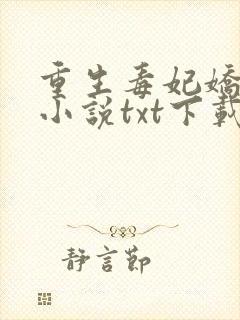 重生毒妃嬌
小說txt下載
靜言節